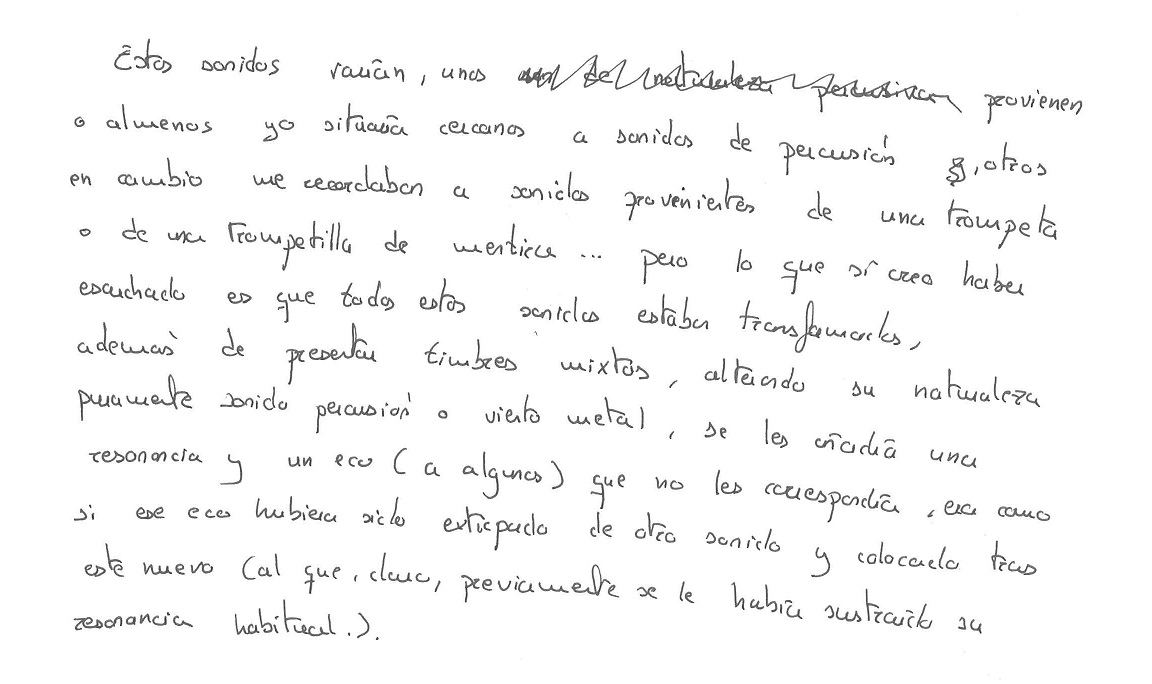 Estos sonidos varían, unos son de naturaleza percusiva provienen
o almenos yo situaría cercanos a sonidos de percusión y, otros
en cambio me recordaban a sonidos provenientes de una trompeta
o de una trompetilla de mentira ... pero lo que sí creo haber
escuchado es que todos estos sonidos estaban transformados,
además de presentar timbres mixtos, alterando su naturaleza
puramente sonido percusión o viento metal, se les añadía una
resonancia y un eco (a algunos) que no les correspondía, era como
si ese eco hubiera sido extirpado de otro sonido y colocado tras
este nuevo (al que, claro, previamente se le había sustraído su
resonancia habitual.).